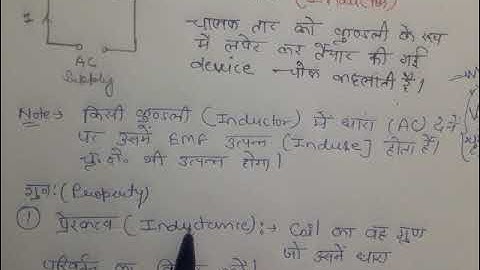 (Inductor)
1
AC
Supply
चालक तार को कुण्डली के रूप
में लपेट कर तैयार की गई
device चोक कहलाती है।
Note:→ किसी कुण्डली (Inductor) में धारा (AC) देने
पर उसमें EMF उत्पन्न [Induse] होता है।
चु. क्षे. भी उत्पन्न होगा।
गुण:(Property)
① प्रेरकत्व (Inductance):→ Coil का वह गुण
जो उसमें धारा
परिवर्तन का